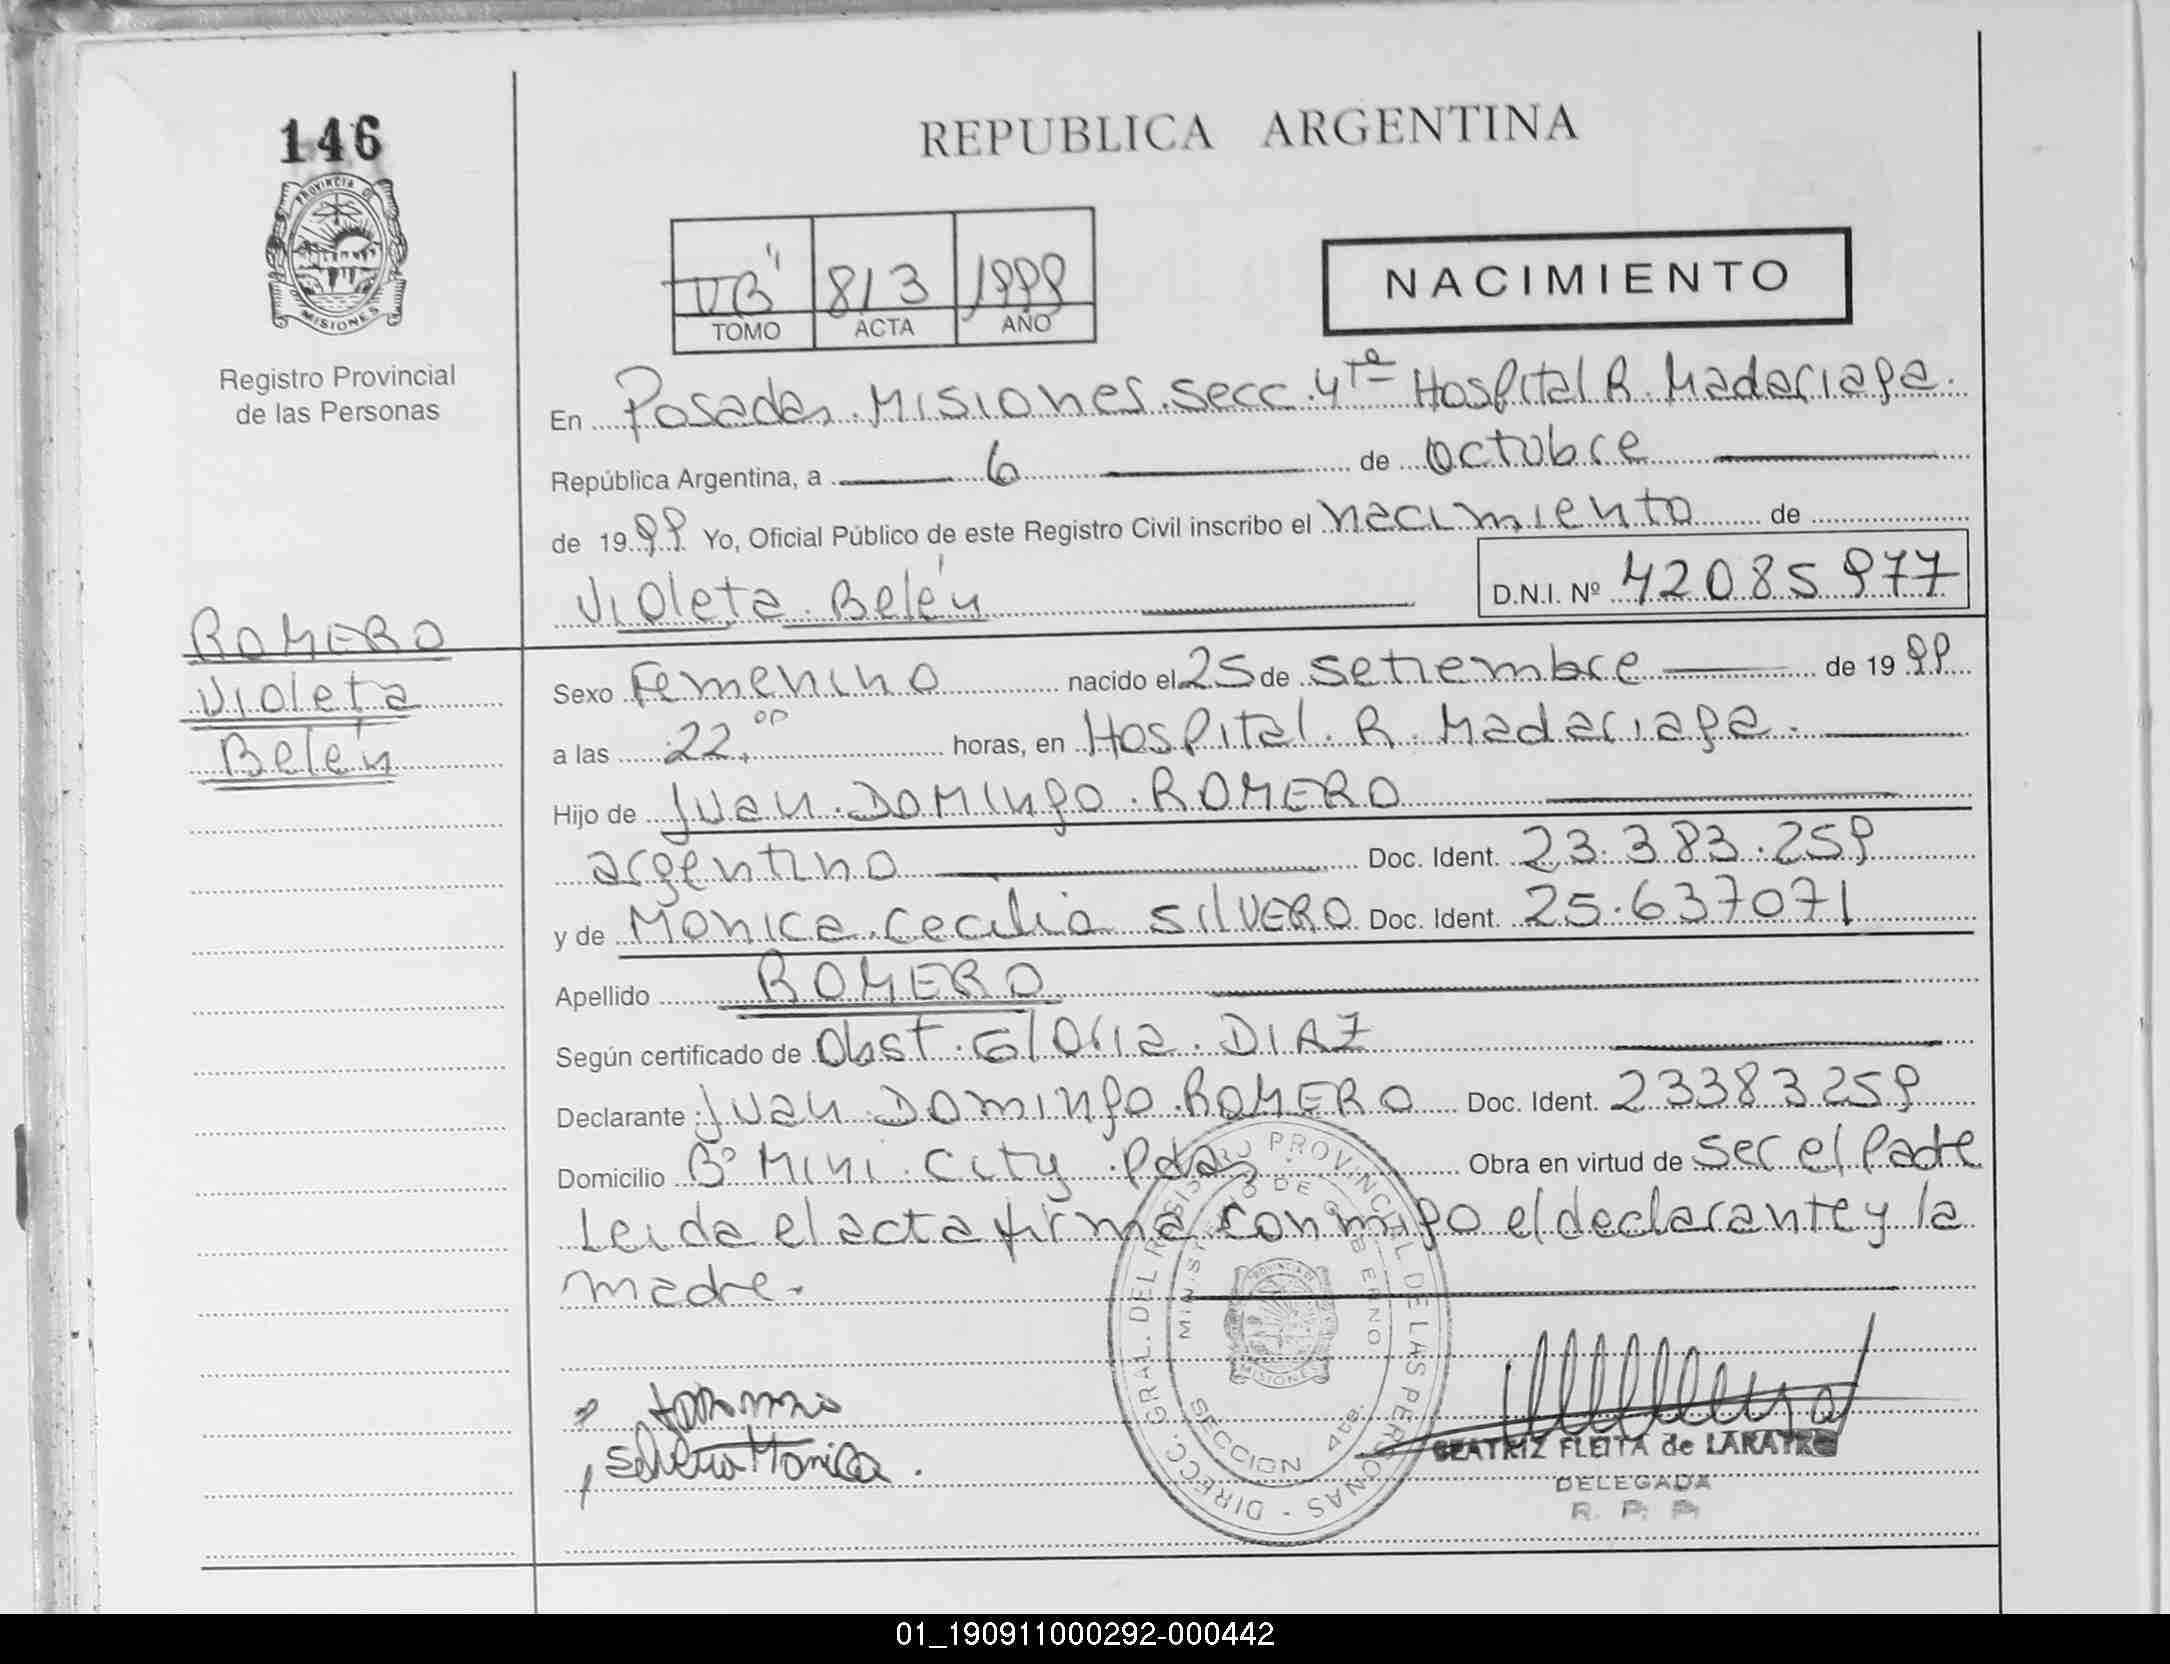 146
REPUBLICA ARGENTINA
PROVINCIA DE
MISIONES
813 1999
TOMO ACTA AÑO
NACIMIENTO
Registro Provincial
de las Personas
En Posadas. Misiones. secc. 4ta Hospital R. Madariaga.
República Argentina, a 6 de octubre
de 1999 Yo, Oficial Público de este Registro Civil inscribo el nacimiento de
Violeta Belén D.N.I. Nº 42085977
ROMERO
Violeta
Belén
Sexo Femenino nacido el 25 de setiembre de 1999
a las 22,00 horas, en Hospital. R. Madariaga.
Hijo de Juan. DOMINGO. ROMERO
argentino Doc. Ident. 23.383.259
y de Monica. Cecilia SILVERO Doc. Ident. 25.637071
Apellido ROMERO
Según certificado de Obst. Gloria. DIAZ
Declarante Juan DOMINGO. ROMERO Doc. Ident. 23383259
Domicilio Bº Mini. City. Pdas Obra en virtud de ser el Padre
Leida el acta firma conmigo el declarante y la
madre.
DIRECC. GRAL. DEL REGISTRO PROVINCIAL DE LAS PERSONAS
MINISTERIO DE GOBIERNO
MISIONES
SECCION 4ta.
Silvero Monica.
BEATRIZ FLEITA de
DELEGADA
R. P. P.
01_190911000292-000442